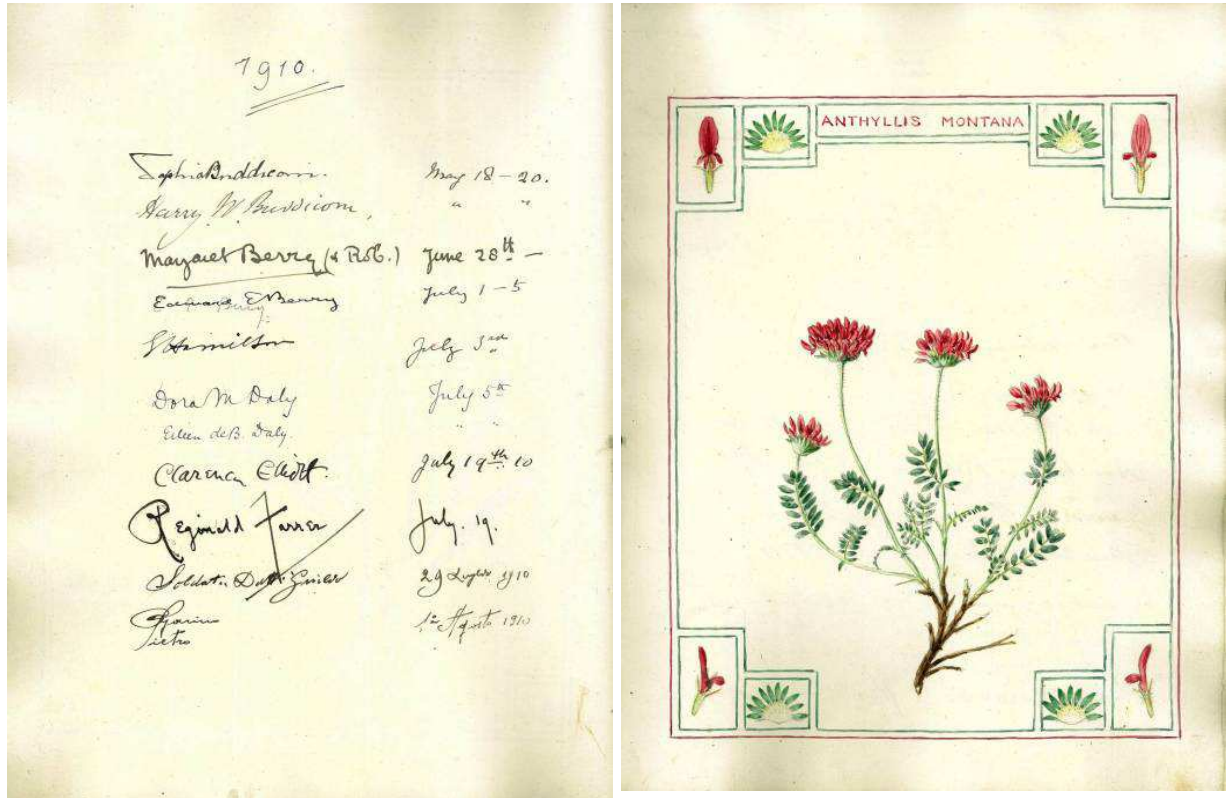 1910.
Sophia Buddicom. May 18 – 20.
Harry W. Buddicom, " "
Margaret Berry (& Rob.) June 28th –
Edward E Berry July 1 – 5
Hamilton July 3rd
Dora M Daly July 5th
Eileen deB. Daly. " "
Clarence Elliott. July 19th 10
Reginald Farrer July. 19.
Soldato 29 Luglio 1910
Pietro 1º Agosto 1910
ANTHYLLIS MONTANA